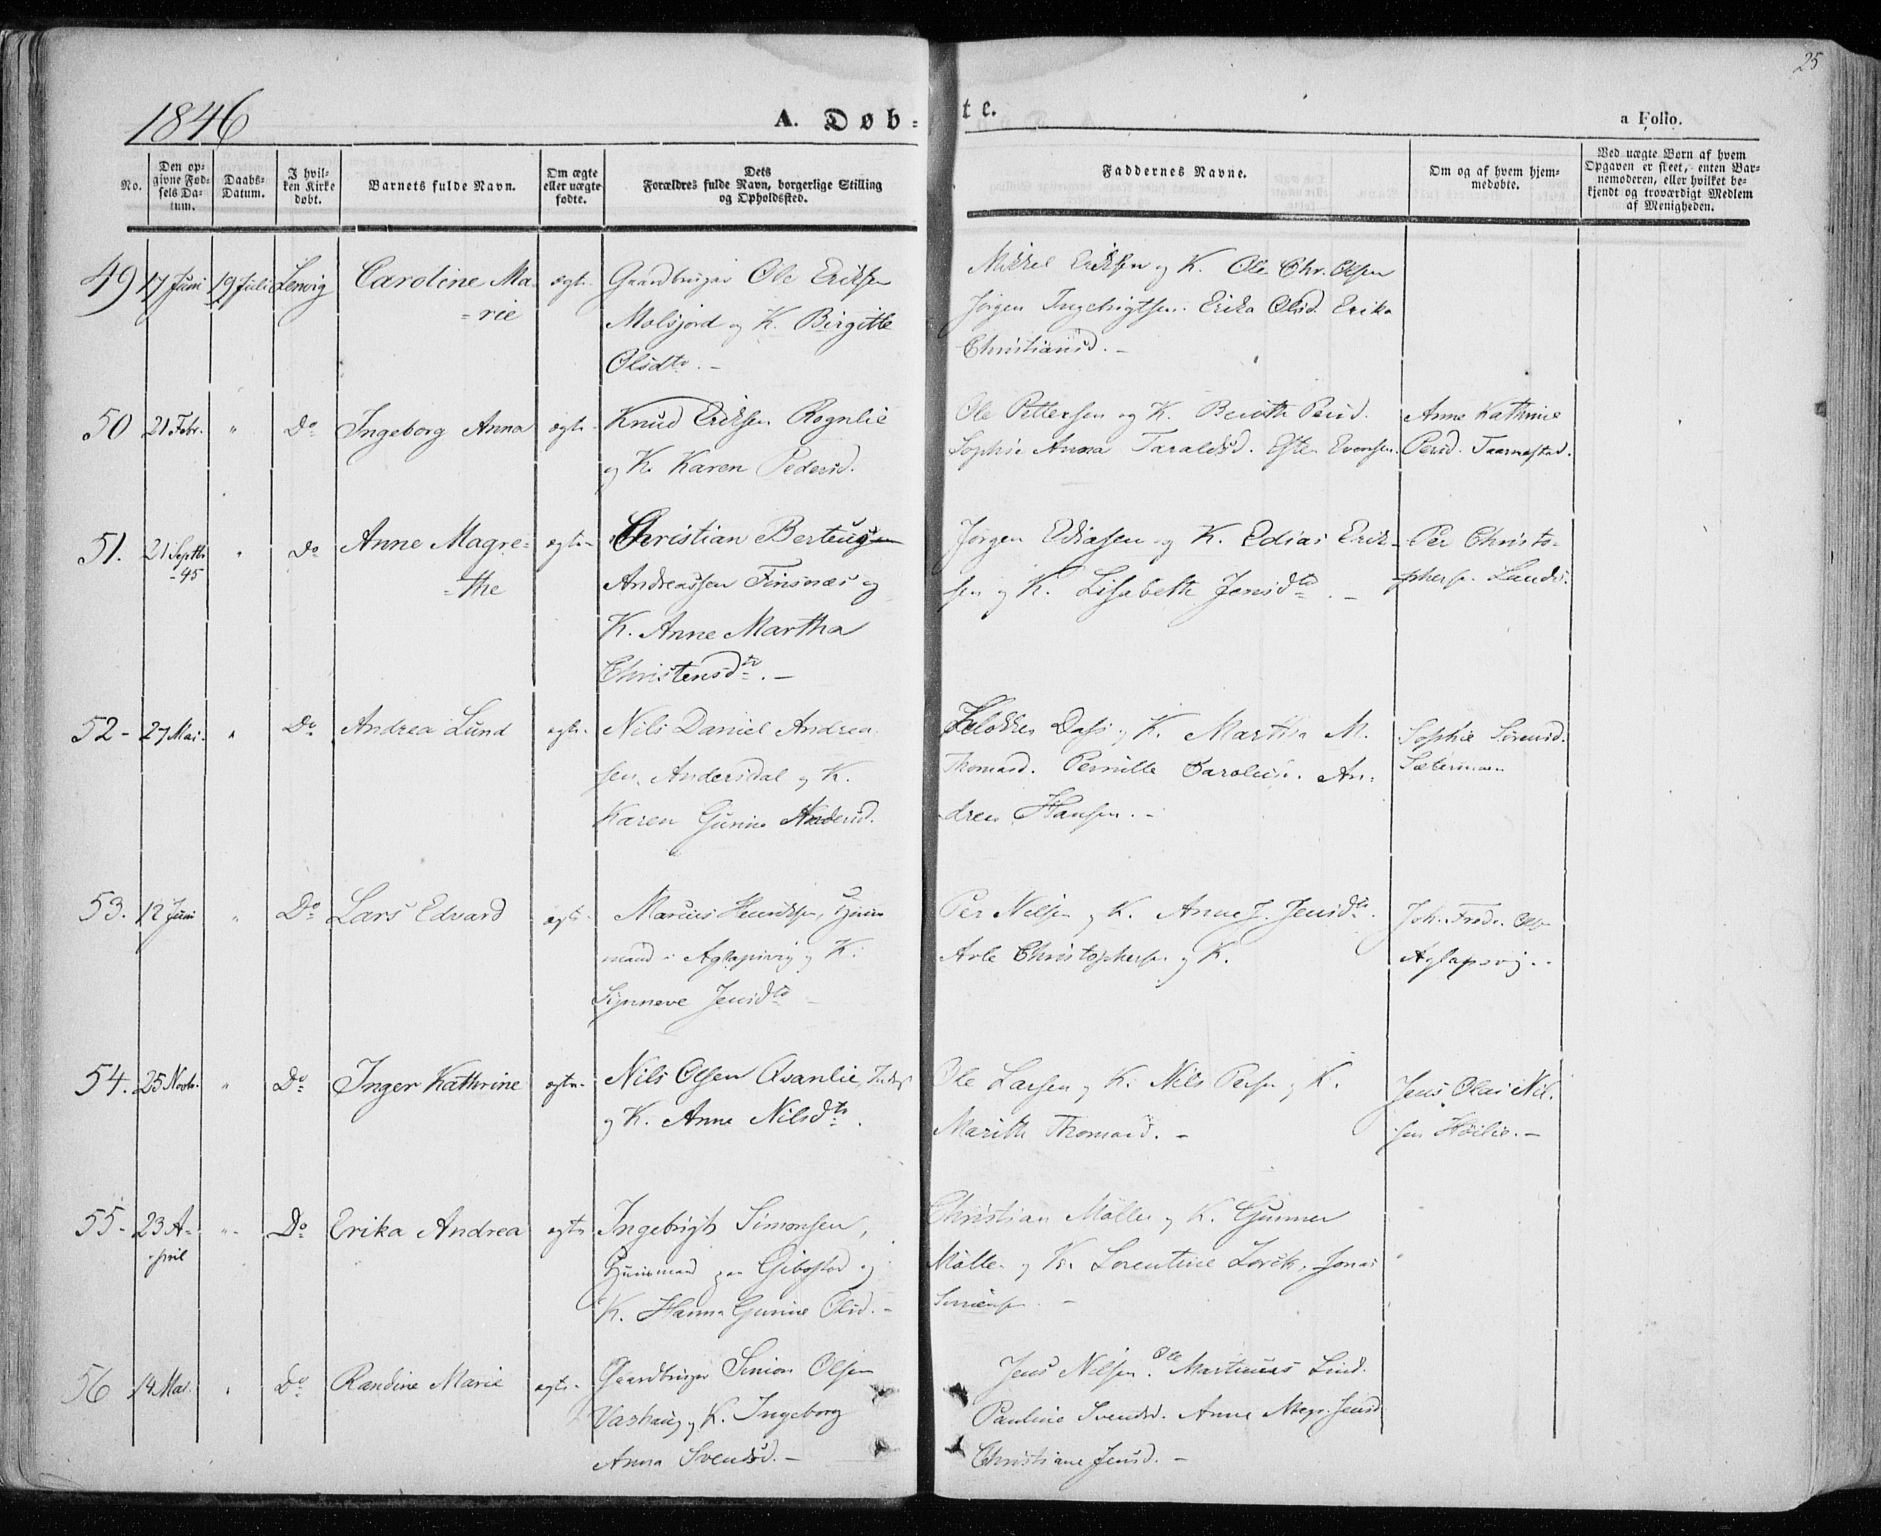 25
1846
A. Døb-
te.
a Folio.
No.
Den op-
givne Fød-
sels Da-
tum.
Daabs-
Datum.
I hvil-
ken Kirke
døbt.
Barnets fulde Navn.
Om ægte
eller uægte
fødte.
Dets
Forældres fulde Navn, borgerlige Stilling
og Opholdssted.
Faddernes Navne.
Om og af hvem hjem-
medøbte.
Ved uægte Børn af hvem
Opgaven er skeet, enten Bar-
nemoderen, eller hvilket be-
kjendt og troværdigt Medlem
af Menigheden.
49 17 Juni 19 Juli Lenvig Caroline Ma- ægte Gaardbruger Ole Eriksen
=rie
Molsjord og K. Birgitte
Olsdtr. -
Mikkel Eriksen og K. Ole Chr. Olsen
Jørgen Ingebrigtsen. Erika Olsd. Erika
Christiansd. -
50 21 Febr. " Do Ingeborg Anna ægte Knud Eriksen Rognlie
og K. Karen Pedersd.
Ole Pettersen og K. Berith Persd.
Sophie Anna Taraldsd. Evensen.
Anne Kathrine
Persd.
51. 21 Septbr " Do Anne Magre- ægte Christian Berteus
-45
=the
Andreassen Finsnæs og
K. Anne Martha
Christensdtr. -
Jørgen Eliasen og K. Elias Erik-
sen og K. Lisabeth Jensdtr. -
Per Christo-
phers.
52- 27 Mai " Do Andrea Lund ægte Nils Daniel Andrea
sen, Andersdal og K.
Karen Andersd.
Klokker Dass og K. Martha M.
Thomasd. Pernille An-
drea Hansen. -
Sophie Sørensd.
53. 12 Juni " Do Lars Edvard ægte Marcus Henriksen, Huus
mand i Aglapsvig og K.
Synneve Jensdtr
Per Nilsen og K. Anne J. Jensdtr.
Arle Christophersen og K.
Joh. Fredr.
Aglapsvig. -
54. 25 Novbr. " Do Inger Kathrine ægte Nils Olsen Aspanlie,
og K. Anne Nilsdtr.
Ole Larsen og K. Nils Persen og K.
Marith Thomasd. -
Jens Olai Nil-
sen Høilie. -
55- 23 A- " Do Erika Andrea ægte Ingebrigt Simonsen,
pril
Huusmand paa Gibostad og
K. Hanna Gurine Olsd. -
Christian Møller og K. Gunner
Møller og K. Lorentine Lorck, Jonas
Simonsen. -
56 14 Mai " Do Randine Marie ægte Gaardbruger Simon Olsen
Vashaug og K. Ingeborg
Anna Svendsd. -
Jens Nilsen. Ole Martinus Lind.
Pauline Svendsd. Anne Magr. Jensd
Christiane Jensd. -